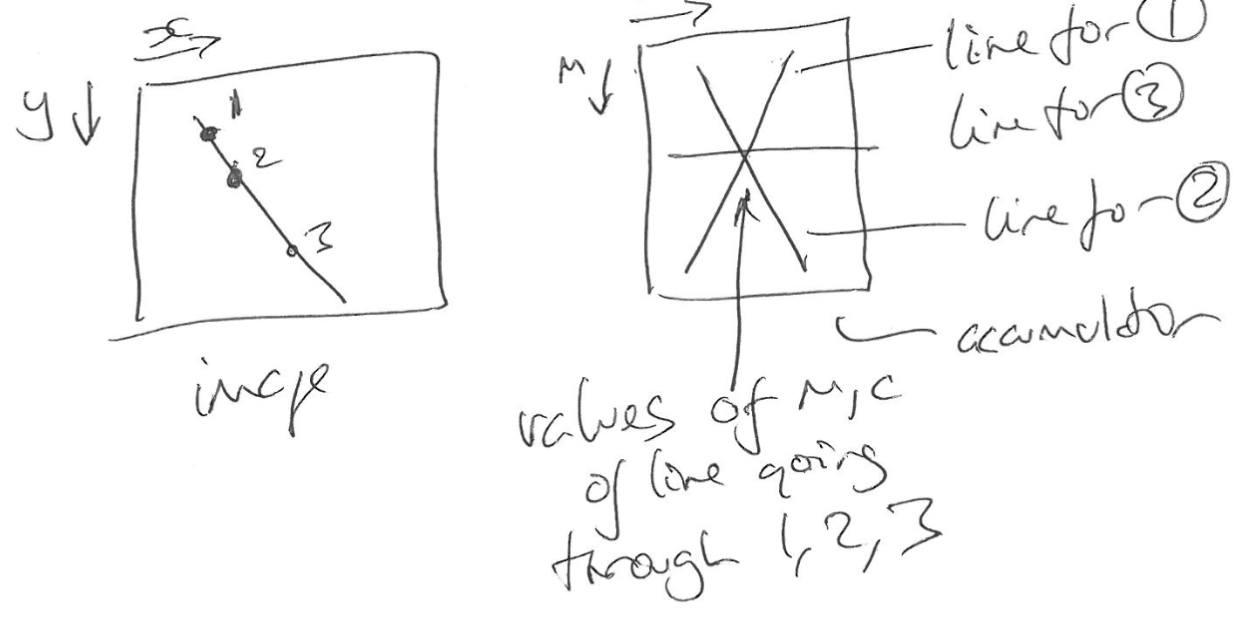 x
y
1
2
3
image
m
line for ①
line for ③
line for ②
accumulator
values of m, c
of line going
through 1, 2, 3